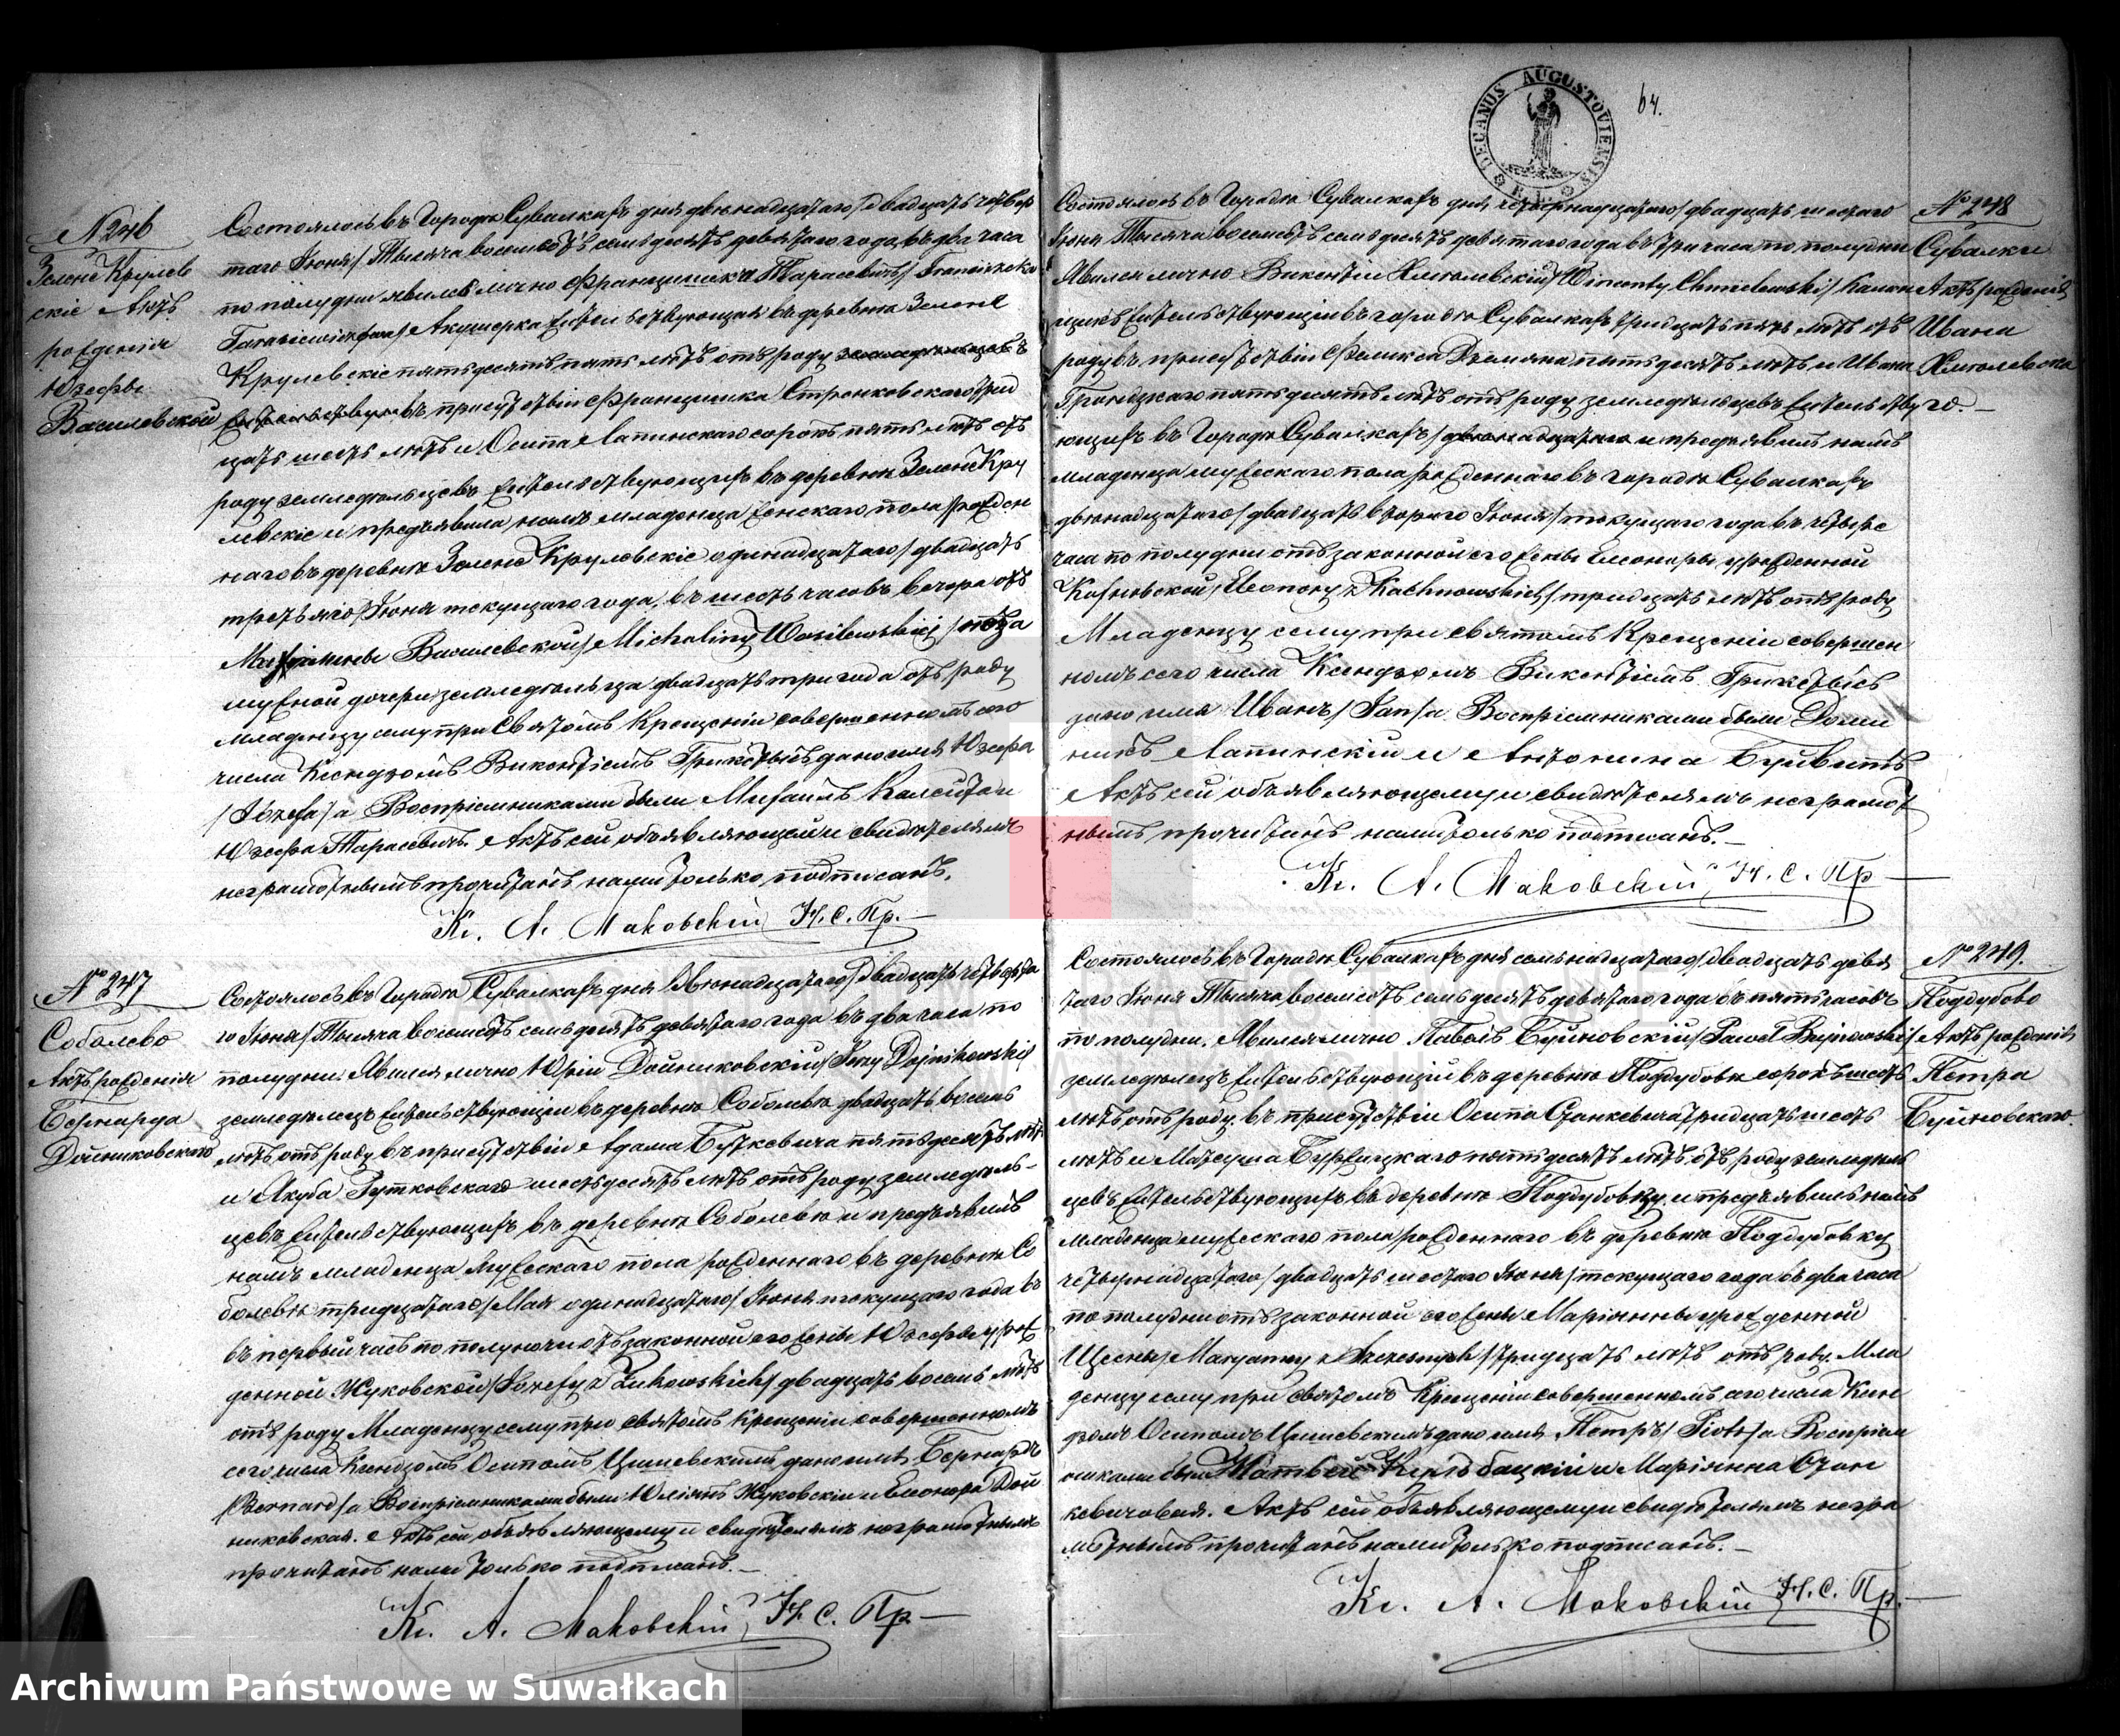 DECANUS AUGUSTOVIENSIS
64.
N 246
Зелене Крулев
скіе Актъ
рожденія
Юзефы
Василевской
Состоялось въ Городѣ Сувалкахъ дня двѣнадцатаго / двадцать четвер
таго Іюня / Тысяча восемьсотъ семьдесятъ девятаго года, въ два часа
по полудни явилась лично Францишка Тарасевичъ / Franciszka
Tarasiewiczowa / Акушерка жительствующая въ деревнѣ Зелене
Крулевскіе пятьдесятъ пять лѣтъ отъ роду
въ присутствіи Францишка Стренковскаго трид
цать шесть лѣтъ и Осипа Лапинскаго сорокъ пять лѣтъ отъ
роду земледѣльцевъ жительствующихъ въ деревнѣ Зелене Кру
левскіе и предъявила намъ младенца женскаго пола рожден
наго въ деревнѣ Зелене Крулевскіе одинадцатаго / двадцать
третьяго / Іюня текущаго года, въ шесть часовъ вечера отъ
Василевской / Michaliny Wasilewskiej / неза
мужной дочери земледѣльца двадцать три года отъ роду
младенцу сему при Святомъ Крещеніи совершенномъ сего
числа Ксендзомъ Викентіемъ Грикетысъ дано имя Юзефа
/ Józefa / а Воспріемниками были Михаилъ Калейтан
Юзефа Тарасевичъ. Актъ сей объявляющей и свидѣтелямъ
неграмотнымъ прочитанъ нами только подписанъ.
Кс. А. Маковскій Н. С. Пр.
№ 247
Соболево
Актъ рожденія
Бернарда
Дойниковскаго
Состоялось въ Городѣ Сувалкахъ дня двѣнадцатаго / двадцать четверта
го Іюня / Тысяча восемьсотъ семьдесятъ девятаго года въ два часа по
полудни. Явился лично Юрій Дойниковскій / Jerzy Dojnikowski /
земледѣлецъ жительствующій въ деревнѣ Соболевѣ двадцать восемь
лѣтъ отъ роду въ присутствіи Адама Буткевича пятьдесятъ лѣтъ
и Якуба Рутковскаго шестьдесятъ лѣтъ отъ роду земледѣль-
цевъ жительствующихъ въ деревнѣ Соболевѣ и предъявилъ
намъ младенца мужескаго пола рожденнаго въ деревнѣ Со
болевѣ тридцатаго / Мая одинадцатаго / Іюня текущаго года въ
въ первый часъ по полуночи отъ законной его жены Юзефы урож
денной Жуковской / Józefy z Żukowskich / двадцать восемь лѣтъ
отъ роду Младенцу сему при святомъ Крещеніи совершенномъ
сего числа Ксендзомъ Осипомъ Цишевскимъ дано имя Бернардъ
/ Bernard / а Воспріемниками были Юліянъ Жуковскій и Елеонора Дой
никовская. Актъ сей объявляющему и свидѣтелямъ неграмотнымъ
прочитанъ нами только подписанъ.
Кс. А. Маковскій Н. С. Пр
№ 248
Сувалки
Актъ рожденія
Ивана
Хмѣлевска
го.
Состоялось въ Городѣ Сувалкахъ дня четырнадцатаго / двадцать шестаго
Іюня Тысяча восемьсотъ семьдесятъ девятаго года въ три часа по полудни
Явился лично Викентій Хмѣлевскій / Wincenty Chmielewski / Камен
щикъ жительствующій въ городѣ Сувалкахъ тридцать пять лѣтъ отъ
роду въ присутствіи Феликса Дземяна пятьдесятъ лѣтъ и Ивана
пятьдесятъ лѣтъ отъ роду земледѣльцевъ жительству
ющихъ въ Городѣ Сувалкахъ и предъявилъ намъ
младенца мужескаго пола рожденнаго въ городѣ Сувалкахъ
двѣнадцатаго / двадцать втораго Іюня / текущаго года въ четыре
часа по полудни отъ законной его жены Елеоноры урожденной
Кахновской / Eleonory z Kachnowskich / тридцать лѣтъ отъ роду
Младенцу сему при святомъ Крещеніи совершен
номъ сего числа Ксендзомъ Викентіемъ Грикетысъ
дано имя Иванъ / Jan / а Воспріемниками были Доми
никъ Лапинскій и Антонина Буйвитъ
Актъ сей объявляющему и свидѣтелямъ неграмот
нымъ прочитанъ нами только подписанъ.
Кс. А. Маковскій Н. С. Пр
№ 249.
Поддубово
Актъ рожденія
Петра
Буйновскаго.
Состоялось въ Городѣ Сувалкахъ дня семьнадцатаго / двадцать девя
таго Іюня Тысяча восемьсотъ семьдесятъ девятаго года въ пять часовъ
по полудни. Явился лично Павелъ Буйновскій / Paweł Bujnowski /
земледѣлецъ жительствующій въ деревнѣ Поддубовѣ сорокъ шесть
лѣтъ отъ роду, въ присутствіи Осипа Станкевича тридцать шесть
лѣтъ и Матеуша пятьдесятъ лѣтъ отъ роду земледѣль
цевъ жительствующихъ въ деревнѣ Поддубовку и предъявилъ намъ
младенца мужескаго пола рожденнаго въ деревнѣ Поддубовку
четырнадцатаго / двадцать шестаго Іюня / текущаго года въ два часа
по полудни отъ законной его жены Маріянны урожденной
Щесны / Maryanny z Szczesnych / тридцать лѣтъ отъ роду. Мла
денцу сему при святомъ Крещеніи совершенномъ сего числа Ксен
дзомъ Осипомъ Цишевскимъ дано имя Петръ / Piotr / а Воспріем
никами были Матвей и Маріянна Стан
кевичовая. Актъ сей объявляющему и свидѣтелямъ негра
мотнымъ прочитанъ нами только подписанъ.
Кс. А. Маковскій Н. С. Пр.
Archiwum Państwowe w Suwałkach